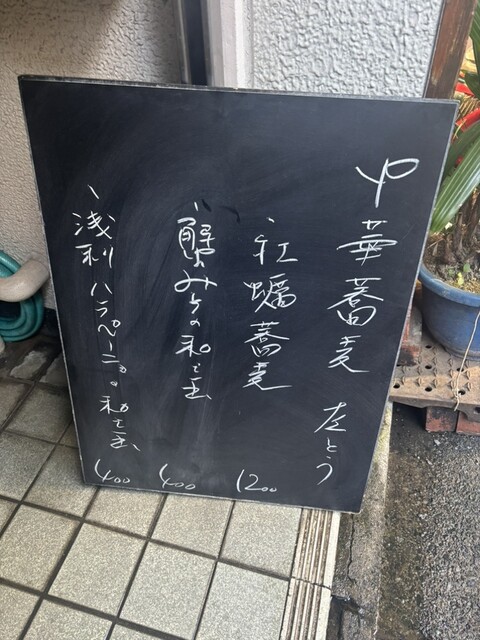 中華蕎麦 左とう
、牡蠣蕎麦 1200
、蟹みその和え玉 400
、浅利ハラペーニョの和え玉 400